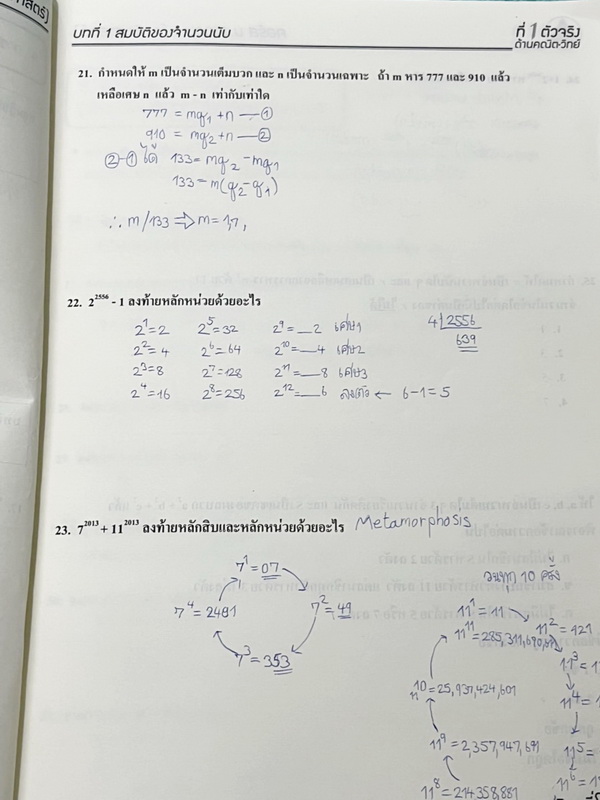 บทที่ 1 สมบัติของจำนวนนับ
ที่ 1 ตัวจริง
ด้านคณิต-วิทย์
21. กำหนดให้ m เป็นจำนวนเต็มบวก และ n เป็นจำนวนเฉพาะ ถ้า m หาร 777 และ 910 แล้ว
เหลือเศษ n แล้ว m - n เท่ากับเท่าใด
777 = mq₁ + n — ①
910 = mq₂ + n — ②
②-① ได้ 133 = mq₂ - mq₁
133 = m(q₂ - q₁)
∴ m/133 ⇒ m = 1,7,
22. 2²⁵⁵⁶ - 1 ลงท้ายหลักหน่วยด้วยอะไร
2¹ = 2 2⁵ = 32 2⁹ = __2 เศษ1 4 2556
2² = 4 2⁶ = 64 2¹⁰ = __4 เศษ2 639
2³ = 8 2⁷ = 128 2¹¹ = __8 เศษ3
2⁴ = 16 2⁸ = 256 2¹² = __6 ลงตัว ← 6-1 = 5
23. 7²⁰¹³ + 11²⁰¹³ ลงท้ายหลักสิบและหลักหน่วยด้วยอะไร Metamorphosis
7¹ = 07
7² = 49
7³ = 353
7⁴ = 2401
วนทุก 10 ครั้ง
11¹ = 11
11² = 121
11³ = 1
11⁴ = 1
11⁵ =
11⁶ = 1
11⁸ = 214358,881
11⁹ = 2,357,947,691
11¹⁰ = 25,937,424,601
11¹¹ = 285,311,670,611